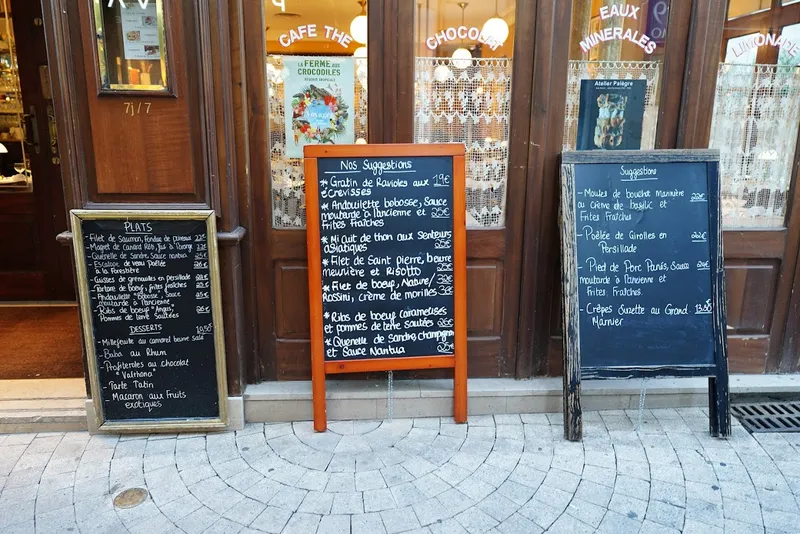 CAFE THE
CHOCOLAT
EAUX
MINERALES
LIMONADE
LA FERME AUX
CROCODILES
Atelier Paiegre
7j/7
PLATS
Filet de Saumon, Fondue de poireaux
Magret de canard Rôti, Jus à l'orange
Quenelle de Sandre, Sauce nantua
Escalope de veau Poêlée
à la Forestière
Cuisses de grenouilles en persillade
Tartare de boeuf, frites fraîches
Andouillette "Bobosse", Sauce
moutarde à l'ancienne
Ribs de boeuf "Angus",
Pommes de terre Sautées
DESSERTS
Millefeuille au caramel beurre salé
Baba au Rhum
Profiteroles au chocolat
"Valrhona"
Tarte Tatin
Macaron aux Fruits
exotiques
Nos Suggestions
* Gratin de Ravioles aux 19€
écrevisses
* Andouillette bobosse, Sauce
moutarde à l'ancienne et 25€
Frites Fraîches
* Mi cuit de thon aux Senteurs
asiatiques 25€
* Filet de Saint pierre, beurre
meunière et Risotto 25€
* Filet de boeuf, Nature/ 32€
Rossini, crème de morilles 38€
* Ribs de boeuf caramelisés
et pommes de terre Sautées 26€
* Quenelle de Sandre, champignon
et Sauce Nantua 25€
Suggestions
- Moules de bouchot marinière
au Crème de basilic et 22€
Frites Fraîches
- Poêlée de Girolles en 22€
Persillade
- Pied de Porc Panés, Sauce 22€
moutarde à l'ancienne et
Frites Fraîches.
- Crêpes Suzette au Grand 13,80€
Marnier